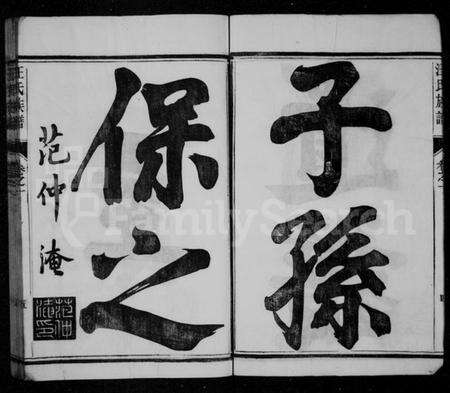 子孫
保之
范仲淹
范仲淹印
汪氏族譜
卷之一
汪氏族譜
卷之一
FamilySearch